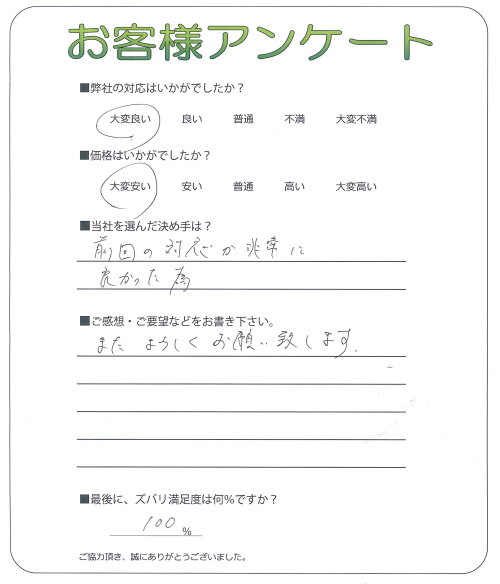 お客様アンケート
■弊社の対応はいかがでしたか？
大変良い 良い 普通 不満 大変不満
■価格はいかがでしたか？
大変安い 安い 普通 高い 大変高い
■当社を選んだ決め手は？
前回の対応が非常に
良かった為
■ご感想・ご要望などをお書き下さい。
また よろしく お願い致します。
■最後に、ズバリ満足度は何%ですか？
100 %
ご協力頂き、誠にありがとうございました。